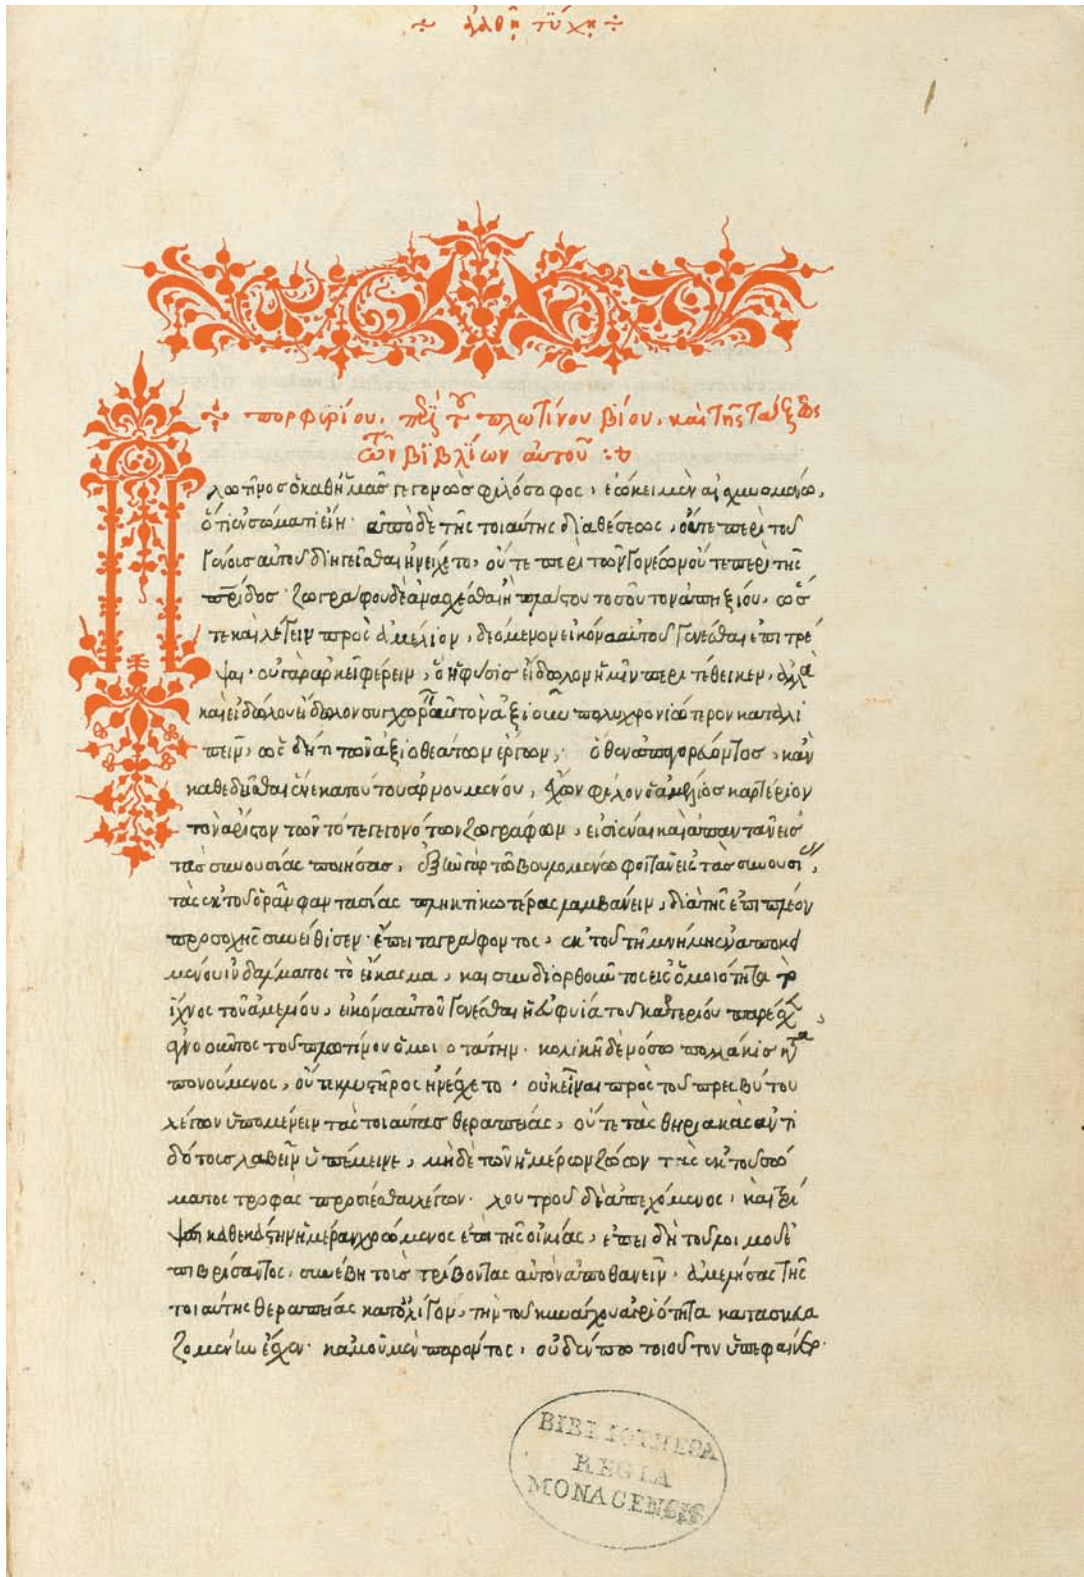 ἀγαθῇ τύχῃ
πορφυρίου, περὶ τοῦ πλωτίνου βίου, καὶ τῆς τάξεως
τῶν βιβλίων αὐτοῦ
Πλωτῖνος ὁ καθ' ἡμᾶς γεγονὼς φιλόσοφος, ἐῴκει μὲν αἰσχυνομένῳ,
ὅτι ἐν σώματι εἴη. ἀπὸ δὲ τῆς τοιαύτης διαθέσεως, οὔτε περὶ τοῦ
γένους αὐτοῦ διηγεῖσθαι ἠνείχετο, οὔτε περὶ τῶν γονέων οὔτε περὶ τῆς
πατρίδος. ζωγράφου δὲ ἀνασχέσθαι ἢ πλάστου τοσοῦτον ἀπηξίου, ὥσ
τε καὶ λέγειν πρὸς ἀμέλιον, δεόμενον εἰκόνα αὐτοῦ γενέσθαι ἐπιτρέ
ψαι. οὐ γὰρ ἀρκεῖ φέρειν, ὃ ἡ φύσις εἴδωλον ἡμῖν περιτέθεικεν, ἀλλὰ
καὶ εἰδώλου εἴδωλον συγχωρεῖν αὐτὸν ἀξιοῦν πολυχρονιώτερον καταλι
πεῖν, ὡς δή τι τῶν ἀξιοθεάτων ἔργων, ὅθεν ἀπαγορεύοντος, καὶ
καθεδεῖσθαι ἕνεκα τούτου ἀρνουμένου, ἔχων φίλον ὁ ἀμέλιος καρτέριον
τὸν ἄριστον τῶν τότε γεγονότων ζωγράφων, εἰσιέναι καὶ ἀπαντᾶν εἰς
τὰς συνουσίας ποιήσας, ἐξῆν γὰρ τῷ βουλομένῳ φοιτᾶν εἰς τὰς συνουσίας,
τὰς ἐκ τοῦ ὁρᾶν φαντασίας πληκτικωτέρας λαμβάνειν, διὰ τῆς ἐπιπλέον
προσοχῆς συνείθισεν. ἔπειτα γράφοντος, ἐκ τοῦ τῇ μνήμῃ ἐναποκει
μένου ἰνδάλματος τὸ εἴκασμα, καὶ συνδιορθοῦντος εἰς ὁμοιότητα τὸ
ἴχνος τοῦ ἀμελίου, εἰκόνα αὐτοῦ γενέσθαι ἡ εὐφυία τοῦ καρτερίου παρέσχεν
ἀγνοοῦντος τοῦ πλωτίνου ὁμοιοτάτην. κοιλιακῇ δὲ νόσῳ πολλάκις κατα
πονούμενος, οὔτε κλυστῆρος ἠνέσχετο. οὐκ εἶναι πρὸς τοῦ πρεσβύτου
λέγων ὑπομένειν τὰς τοιαύτας θεραπείας, οὔτε τὰς θηριακὰς ἀντι
δότους λαβεῖν ὑπέμεινε, μηδὲ τῶν ἡμέρων ζώων τὰς ἐκ τοῦ σώ
ματος τροφὰς προσίεσθαι λέγων. λουτροῦ δὲ ἀπεχόμενος, καὶ τρί
ψεσι καθ' ἑκάστην ἡμέραν χρώμενος ἐπὶ τῆς οἰκίας, ἐπειδὴ τοῦ λοιμοῦ ἐ
πιβρίσαντος, συνέβη τοὺς τρίβοντας αὐτὸν ἀποθανεῖν. ἀμελήσας τῆς
τοιαύτης θεραπείας κατ' ὀλίγον, τὴν τοῦ κυνάγχου ἀγριότητα κατασκευα
ζομένην ἔσχεν. κἀμοῦ μὲν παρόντος, οὐδέν πω τοιοῦτον ὑπεφαίνετο.
BIBLIOTHECA
REGIA
MONACENSIS